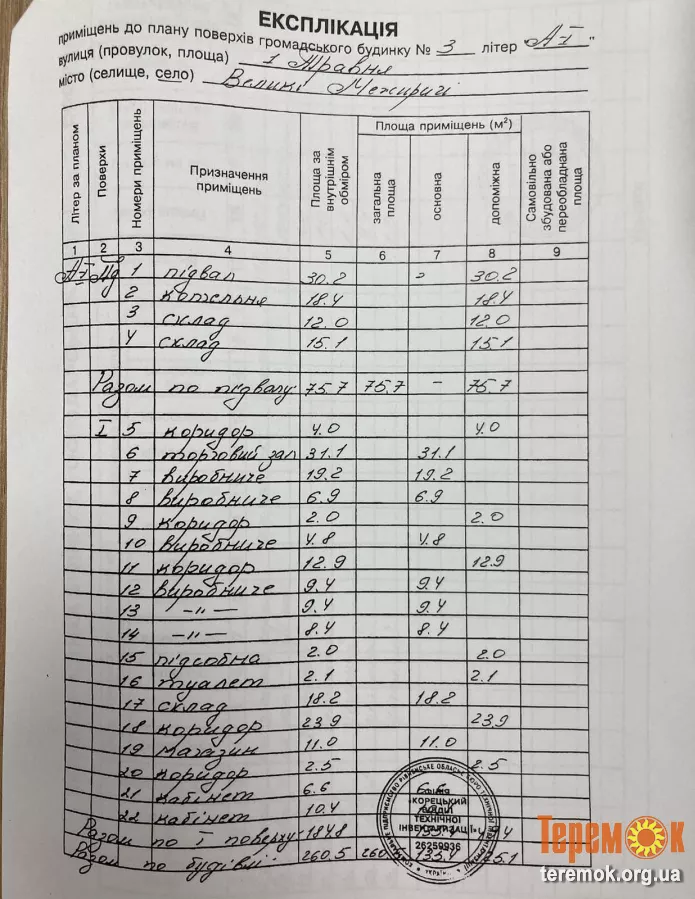 ЕКСПЛІКАЦІЯ
приміщень до плану поверхів громадського будинку № 3 літер "А-І"
вулиця (провулок, площа) 1 Травня
місто (селище, село) Великі Межирічі
Літер за планом Поверхи Номери приміщень Призначення приміщень Площа за внутрішнім обміром Площа приміщень (м²) загальна площа основна допоміжна Самовільно збудована або переобладнана площа
1 2 3 4 5 6 7 8 9
А-І Пд 1 підвал 30.2 - 30.2
2 котельня 18.4 18.4
3 склад 12.0 12.0
4 склад 15.1 15.1
Разом по підвалу: 75.7 75.7 - 75.7
І 5 коридор 4.0 4.0
6 торговий зал 31.1 31.1
7 виробниче 19.2 19.2
8 виробниче 6.9 6.9
9 коридор 2.0 2.0
10 виробниче 4.8 4.8
11 коридор 12.9 12.9
12 виробниче 9.4 9.4
13 -"- 9.4 9.4
14 -"- 8.4 8.4
15 підсобна 2.0 2.0
16 туалет 2.1 2.1
17 склад 18.2 18.2
18 коридор 23.9 23.9
19 магазин 11.0 11.0
20 коридор 2.5 2.5
21 кабінет 6.6 6.6
22 кабінет 10.4
Разом по І поверху: 184.8
Разом по будівлі: 260.5 260. 135.4
КОРЕЦЬКИЙ
ВІДДІЛ
ТЕХНІЧНОЇ
ІНВЕНТАРИЗАЦІЇ
26259936
Теремок
teremok.org.ua